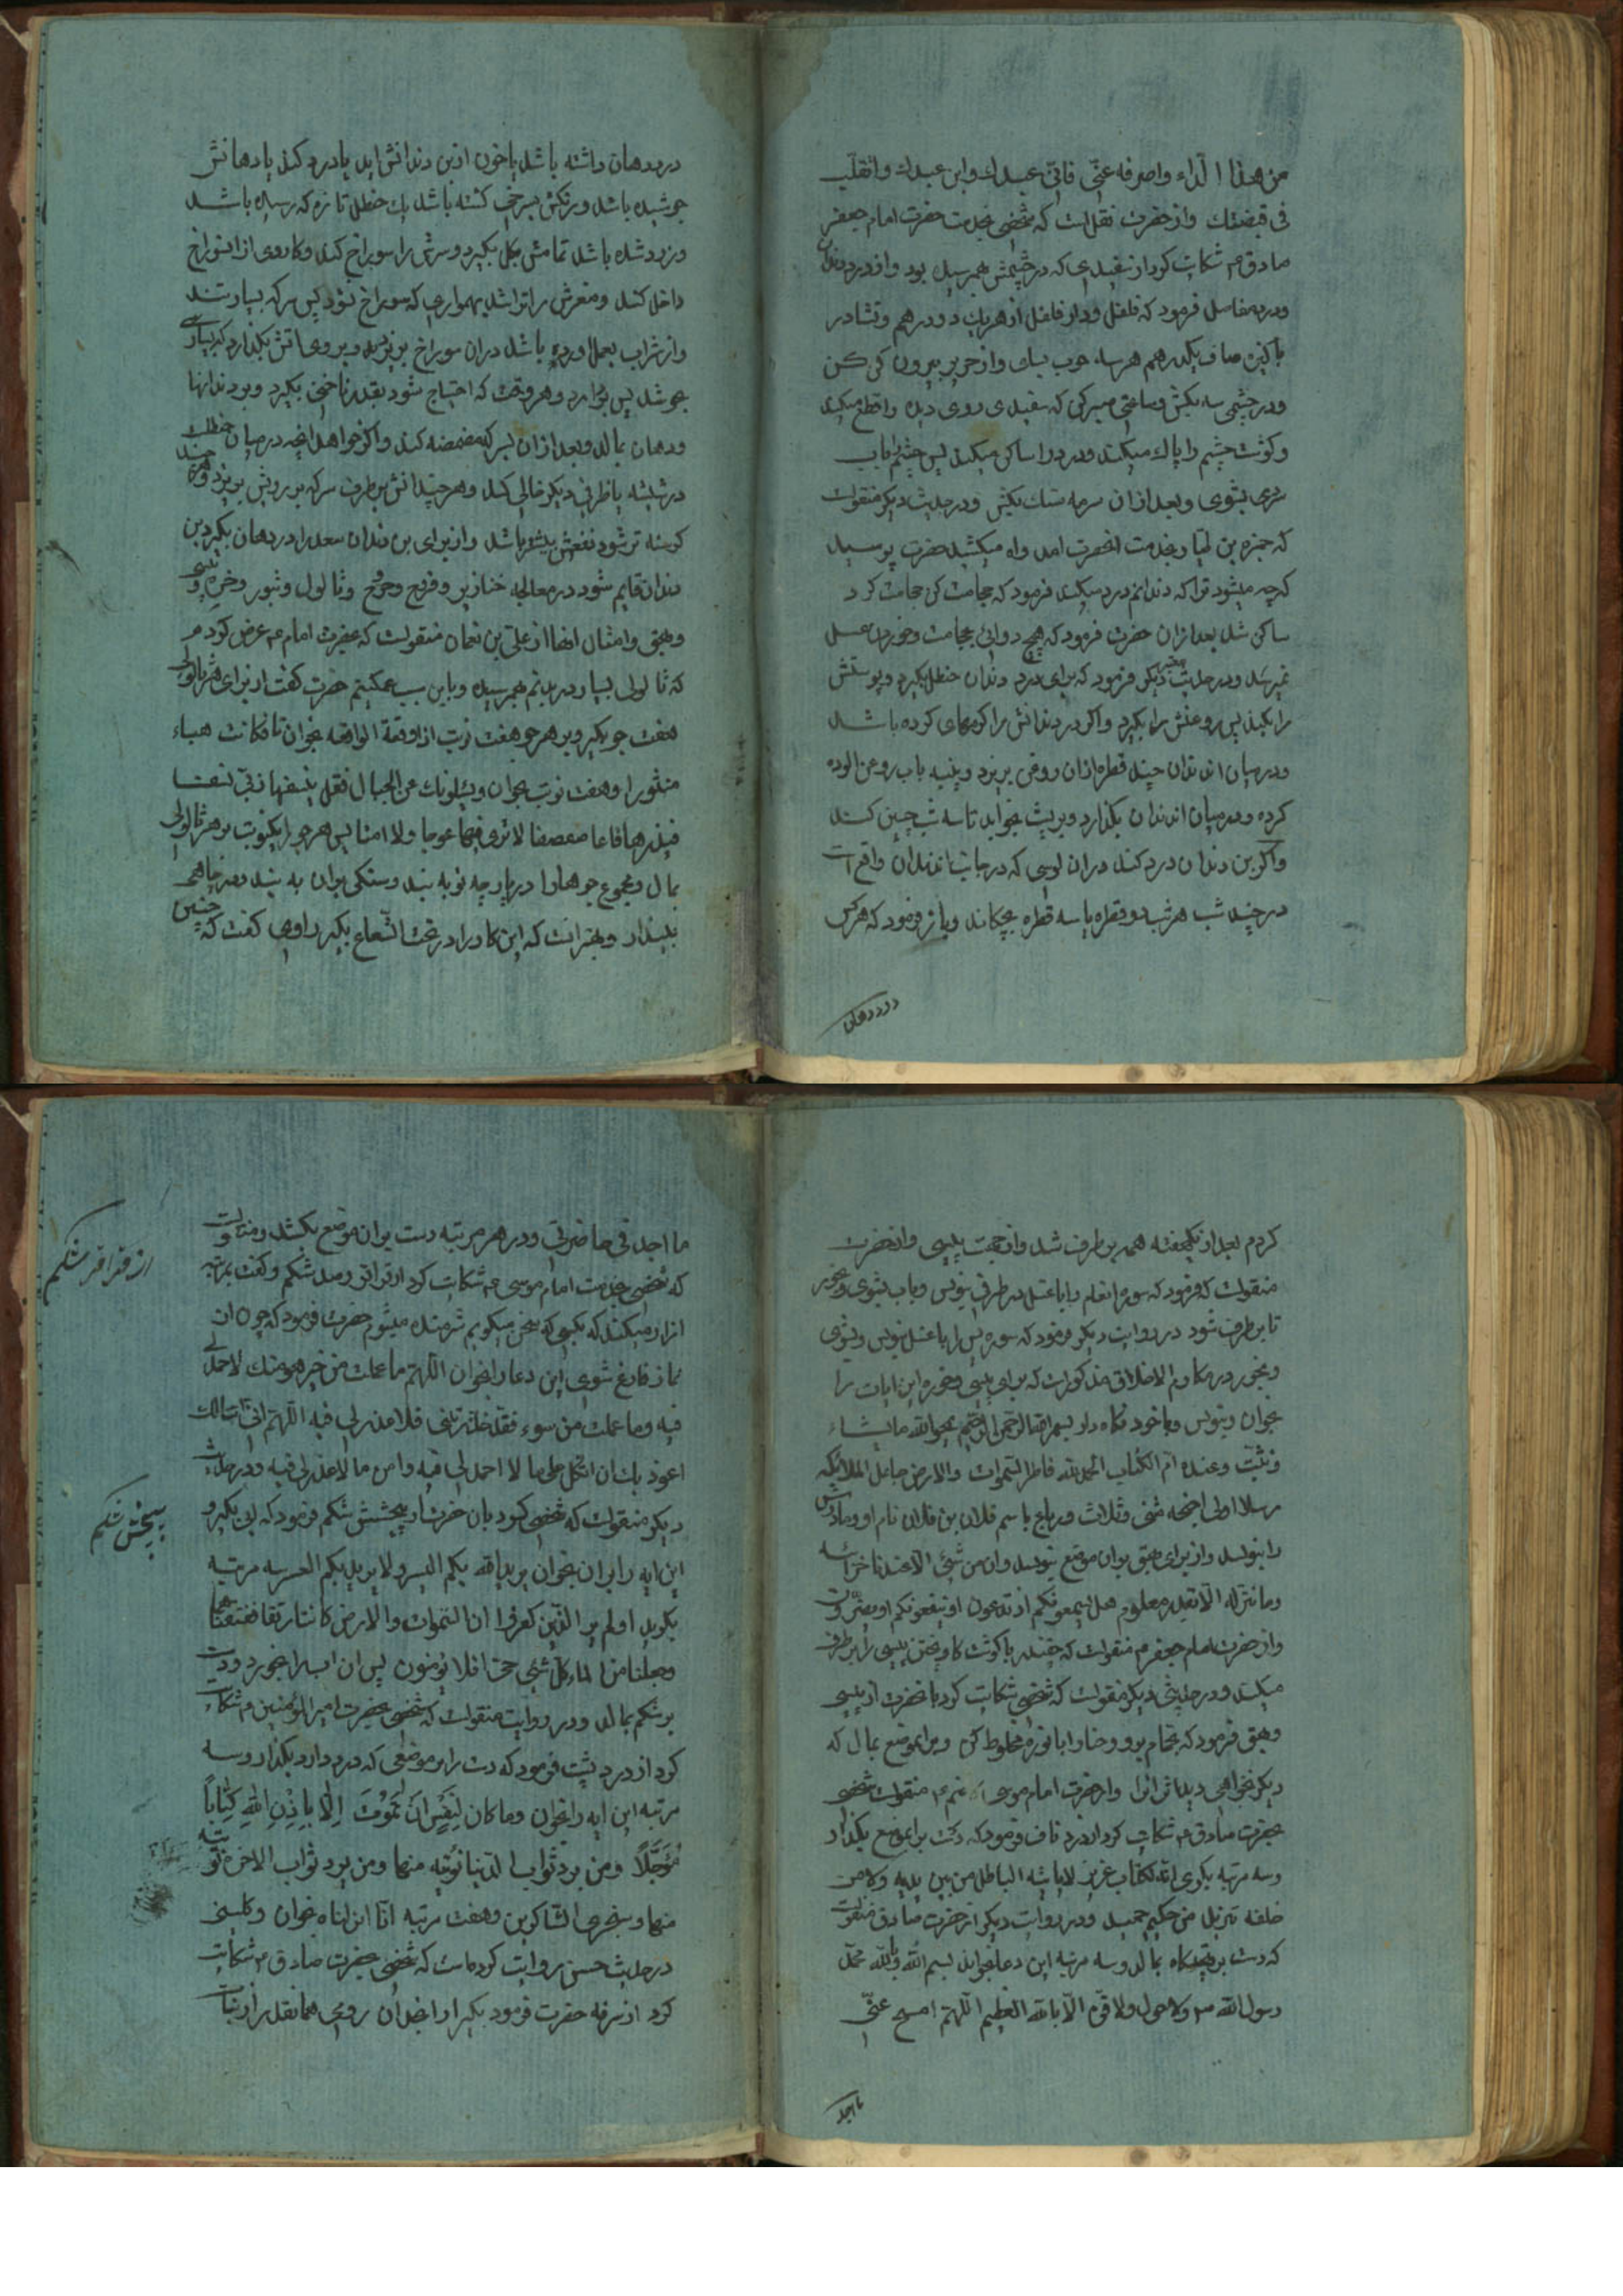 من هذا الداء واصرفه عنّی فانّی عبدك وابن عبدك واتقلب
فی قبضتك وازحضرت نقلست که شخصی بخدمت حضرت امام جعفر
صادق ع شکایت کرد از سفیدی که در چشمش بهمرسیده بود وازدرد دندان
ودرد مفاصل فرمود که فلفل ودار فلفل ازهریك دودرهم ونشادر
پاکیزه صاف یکدرهم هرسه خوب بسای وازحریر بیرون کن
ودرچشمی سه بکش وساعتی صبرکن که سفیدی روی دیده را قطع میکند
وکوشت چشم را پاك میکند ودرد را ساکن میکند پس چشم را باب
سرد بشوی وبعدازان سرمه سنك بکش ودرحدیث دیکر منقولست
که حمزه بن بخدمت انحضرت امد واه میکشید حضرت پرسید
که چه میشود ترا که دندانم درد میکند فرمود که حجامت کن حجامت کرد
ساکن شد بعدازان حضرت فرمود که هیچ دوائی بحجامت وخوردن عسل
نمیرسد ودرحدیث دیکر فرمود که برای درد دندان حنظل بکیرد وپوستش
را بکند پس روغنش را بکیرد واکر در دندانش را کرمهای کرده باشد
ودرمیان ان دندان چند قطره ازان روغن بریزد وپنبه باب روغن الوده
کرده ودرمیان ان دندان بکذارد وبرپشت بخوابد تا سه شب چنین کند
واکر بن دندان درد کند دران کوشی که درجانب ان دندان واقع است
درچند شب هرشب دوقطره یا سه قطره بچکاند وباز فرمود که هرکس
درد دهان
درد دهان داشته باشد یا خون ازبن دندانش اید یا درد کند یا دهانش
جوشیده باشد ورنکش بسرخی کشته باشد یك حنظل تازه که رسیده باشد
وزرد شده باشد تمامش بکل بکیرد وسرش را سوراخ کند وکاردی ازان سوراخ
داخل کند ومغزش را تراشد بهمواری که سوراخ نشود پس سرکه بسیار تند
وازشراب بعمل اورده باشد دران سوراخ بریزد وبروی اتش بکذارد که بسیار
بجوشد پس بردارد وهروقت که احتیاج شود بقدر ناخنی بکیرد وبردندانها
ودهان بمالد وبعدازان بسرکه مضمضه کند واکر خواهد انچه درمیان حنظلست
درشیشه یا ظرفی دیکر خالی کند وهرچند انش برطرف سرکه برویش بریزد وهرچند
کهنه تر شود نفعش بیشتر باشد وازبرای بن دندان سعد را دردهان بکیرد بن
دندان قایم شود درمعالجه خنازیر وقروح وجروح وثالول وبثور وخره وپیسی
وبهق وامثال انها ازعلی بن نعمان منقولست که بحضرت امام ع عرض کردم
که ثالولی بسیار دربدنم بهمرسیده وباین سبب غمکینم حضرت کفت ازبرای هرثالولی
هفت جو بکیر وبرهرجو هفت نوبت اذا وقعة الواقعه بخوان تا فکانت هباء
منثورا وهفت نوبت بخوان ویسئلونك عن الجبال فقل ینسفها ربّی نسفا
فیذرها قاعا صفصفا لاتری فیها عوجا ولا امتا پس هرجو را یکنوبت برهرثالولی
بمال ومجموع جوها را درپارچه نو به بند وسنکی بران به بند ودرچاهی
بینداز وبهتر انست که این کار را درتحت الشعاع بکیرد راوی کفت که چنین
کردم بعد از یکهفته همه برطرف شد وازجهت پیسی وازحضرت
منقولست که فرمود که سوره انعام را باعسل درظرفی بنویس وباب بشوی وبخور
تا برطرف شود درروایت دیکر فرمود که سوره یس را باعسل بنویس وبشوی
وبخور ودرمکارم الاخلاق مذکوراست که برای پیسی وخوره این ایات را
بخوان وبنویس وباخود نکاه دار بسم الله الرحمن الرحیم یمحوالله مایشاء
ویثبت وعنده ام الکتاب الحمدلله فاطر السموات والارض جاعل الملائکه
رسلا اولی اجنحه مثنی وثلاث ورباع باسم فلان بن فلان نام او ومادرش
را بنویسد وازبرای بهق بران موضع بنویسد وان من شئ الا عندنا خزائنه
وما ننزله الا بقدر معلوم هل یسمعونکم اذ تدعون او ینفعونکم او یضرون
وازحضرت امام جعفر م منقولست که چغندر باکوشت کاو پختن پیسی را برطرف
میکند ودرحدیثی دیکر منقولست که شخصی شکایت کرد بانحضرت از پیسی
وبهق فرمود که بحمام برو وحنا را بانوره مخلوط کن وبران موضع بمال که
دیکر نخواهی دید اثر انرا وازحضرت امام موسی کاظم ع منقولست شخصی
بحضرت صادق ع شکایت کرد ازدرد ناف فرمود که دست بران موضع بکذار
وسه مرتبه بکوی انه لکتاب عزیز لایاتیه الباطل من بین یدیه ولا من
خلفه تنزیل من حکیم حمید ودرروایت دیکر ازحضرت صادق منقولست
که دست بر بمالد وسه مرتبه این دعا بخواند بسم الله وبالله محمد
رسول الله ص ولاحول ولاقوة الا بالله العظیم اللهم امسح عنّی
ما اجد
ما اجد فی خاصرتی ودرهرمرتبه دست بران موضع بکشد ومنقولست
که شخصی بخدمت امام موسی ع شکایت کرد از قراقر ودرد شکم وکفت بمرتبه
ازار میکند که بکسی که سخن میکویم شرمنده میشوم حضرت فرمود که چون از
نماز فارغ شوی این دعا را بخوان اللهم ما عملت من خیر فهو منك لاحمد لی
فیه وما عملت من سوء فقد حذرتنی فلا عذر لی فیه اللهم انی
اعوذ بك ان اتکل علی ما لا احمد لی فیه وامن ما لا عذر لی فیه ودرحدیث
دیکر منقولست که شخصی کرد بان حضرت از پیچش شکم فرمود که اب بکیر و
این ایه را بران بخوان یرید الله بکم الیسر ولا یرید بکم العسر سه مرتبه
بکوید اولم یر الذین کفروا ان السموات والارض کانتا رتقا ففتقناهما
وجعلنا من الماء کل شئ حی افلا یؤمنون پس ان اب را بخورد ودست
برشکم بمالد ودرروایت منقولست که شخصی بحضرت امیرالمؤمنین م شکایت
کرد از درد پشت فرمود که دست را برموضعی که درد دارد بکذار وسه
مرتبه این ایه را بخوان وما کان لِنَفْسٍ اَنْ تَمُوْتَ اِلّا بِاِذْنِ اللهِ كِتَاباً
مُؤَجَّلًا ومن یرد ثواب الدنیا نؤته منها ومن یرد ثواب الاخرة نؤته
منها وسنجزی الشاکرین وهفت مرتبه انا انزلناه بخوان وکلینی
درحدیث حسن روایت کرده است که شخصی بحضرت صادق ع شکایت
کرد ازسرفه حضرت فرمود بکیر انجدان رومی همانقدر از نبات
از قراقر شکم
پیچش شکم